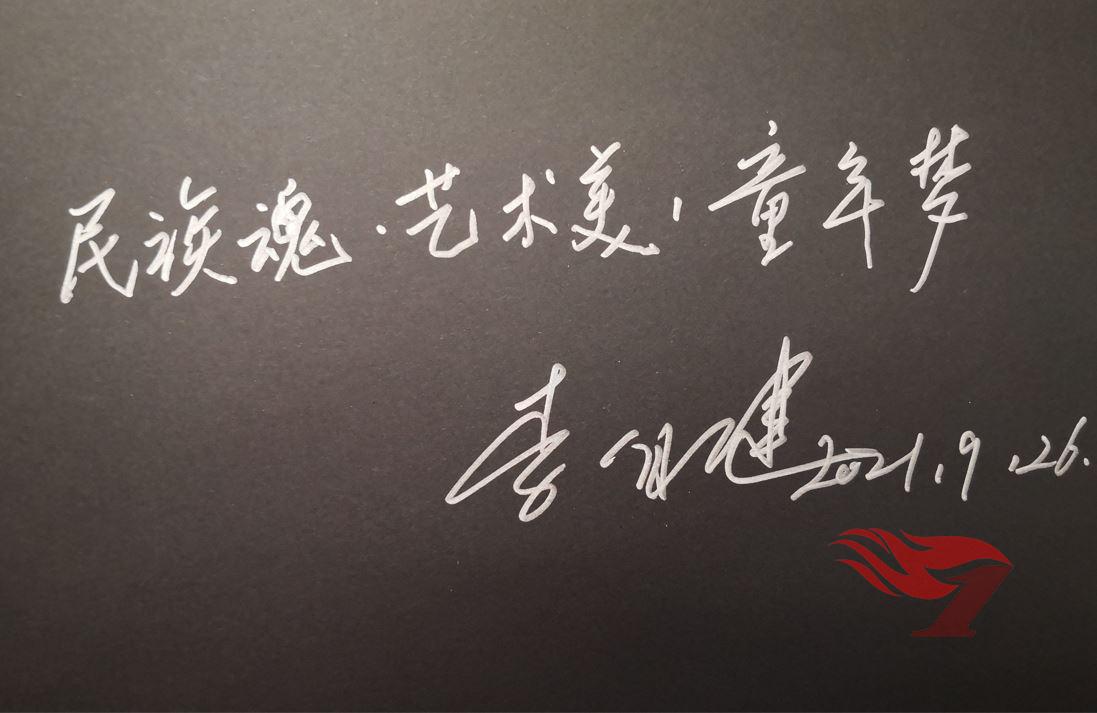 民族魂·艺术美,童年梦
李 建 2021.9.26.